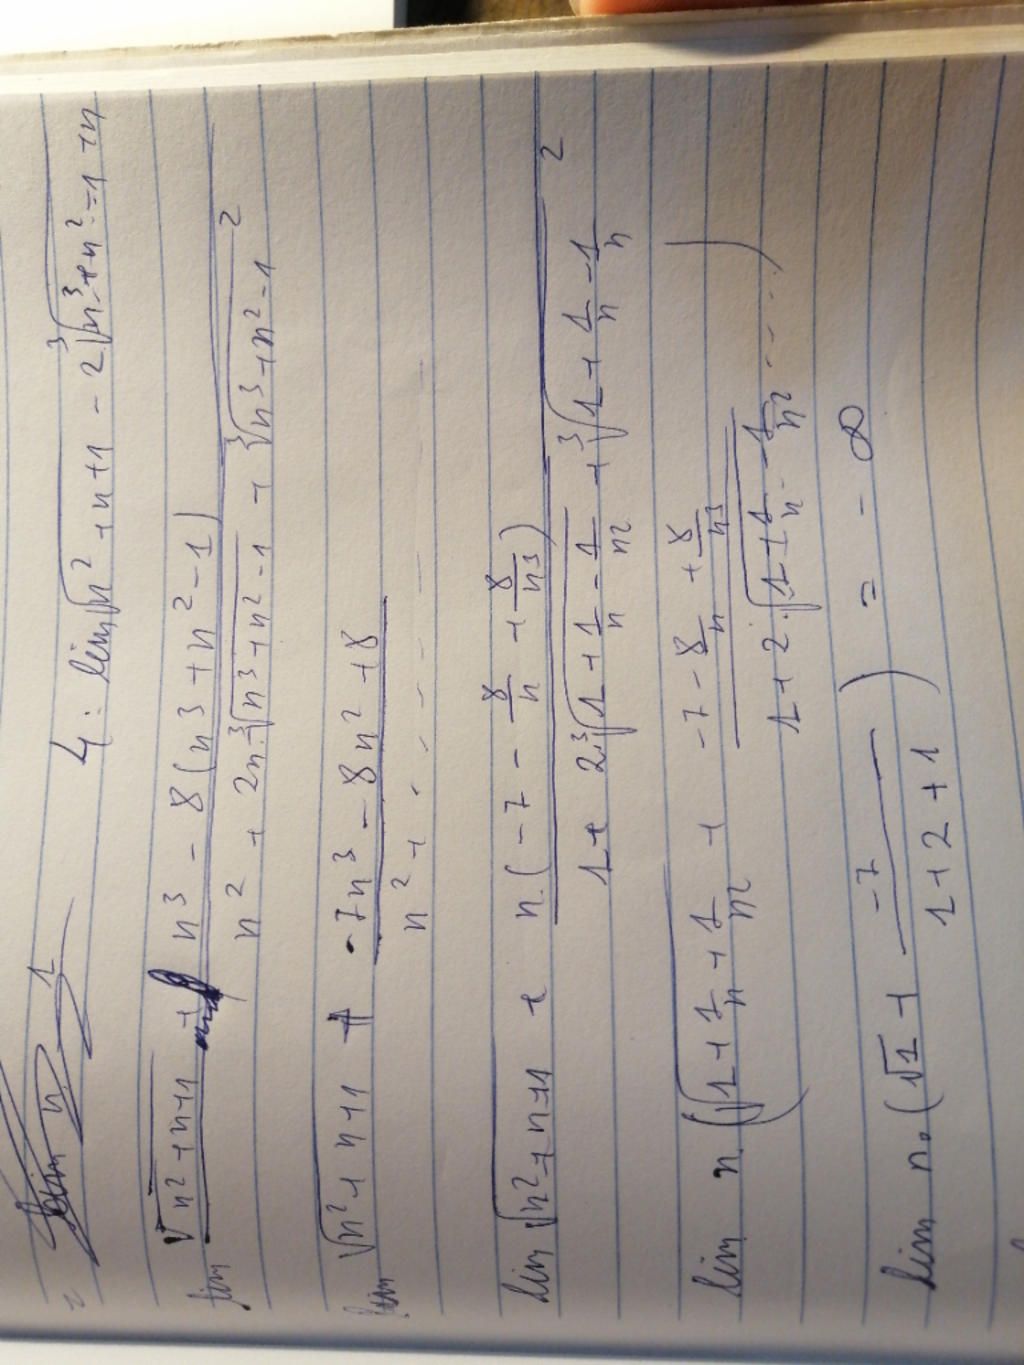 4: lim √(n² + n + 1) - 2 ∛(n³ + n² - 1) + n
lim √(n² + n + 1) + (n³ - 8(n³ + n² - 1)) / (n² + 2n · ∛(n³ + n² - 1) + ∛(n³ + n² - 1)²)
lim √(n² + n + 1) + (-7n³ - 8n² + 8) / (n² + - - - -)
lim √(n² + n + 1) + (n · (-7 - 8/n + 8/n³)) / (1 + 2 · ∛(1 + 1/n - 1/n²) + ∛(1 + 1/n - 1/n)²)
lim n · (√(1 + 1/n + 1/n²) + (-7 - 8/n + 8/n3) / (1 + 2 · √(1 + 1/n - 1/n²) - - - -))
lim n · (√1 + (-7) / (1 + 2 + 1)) = -∞